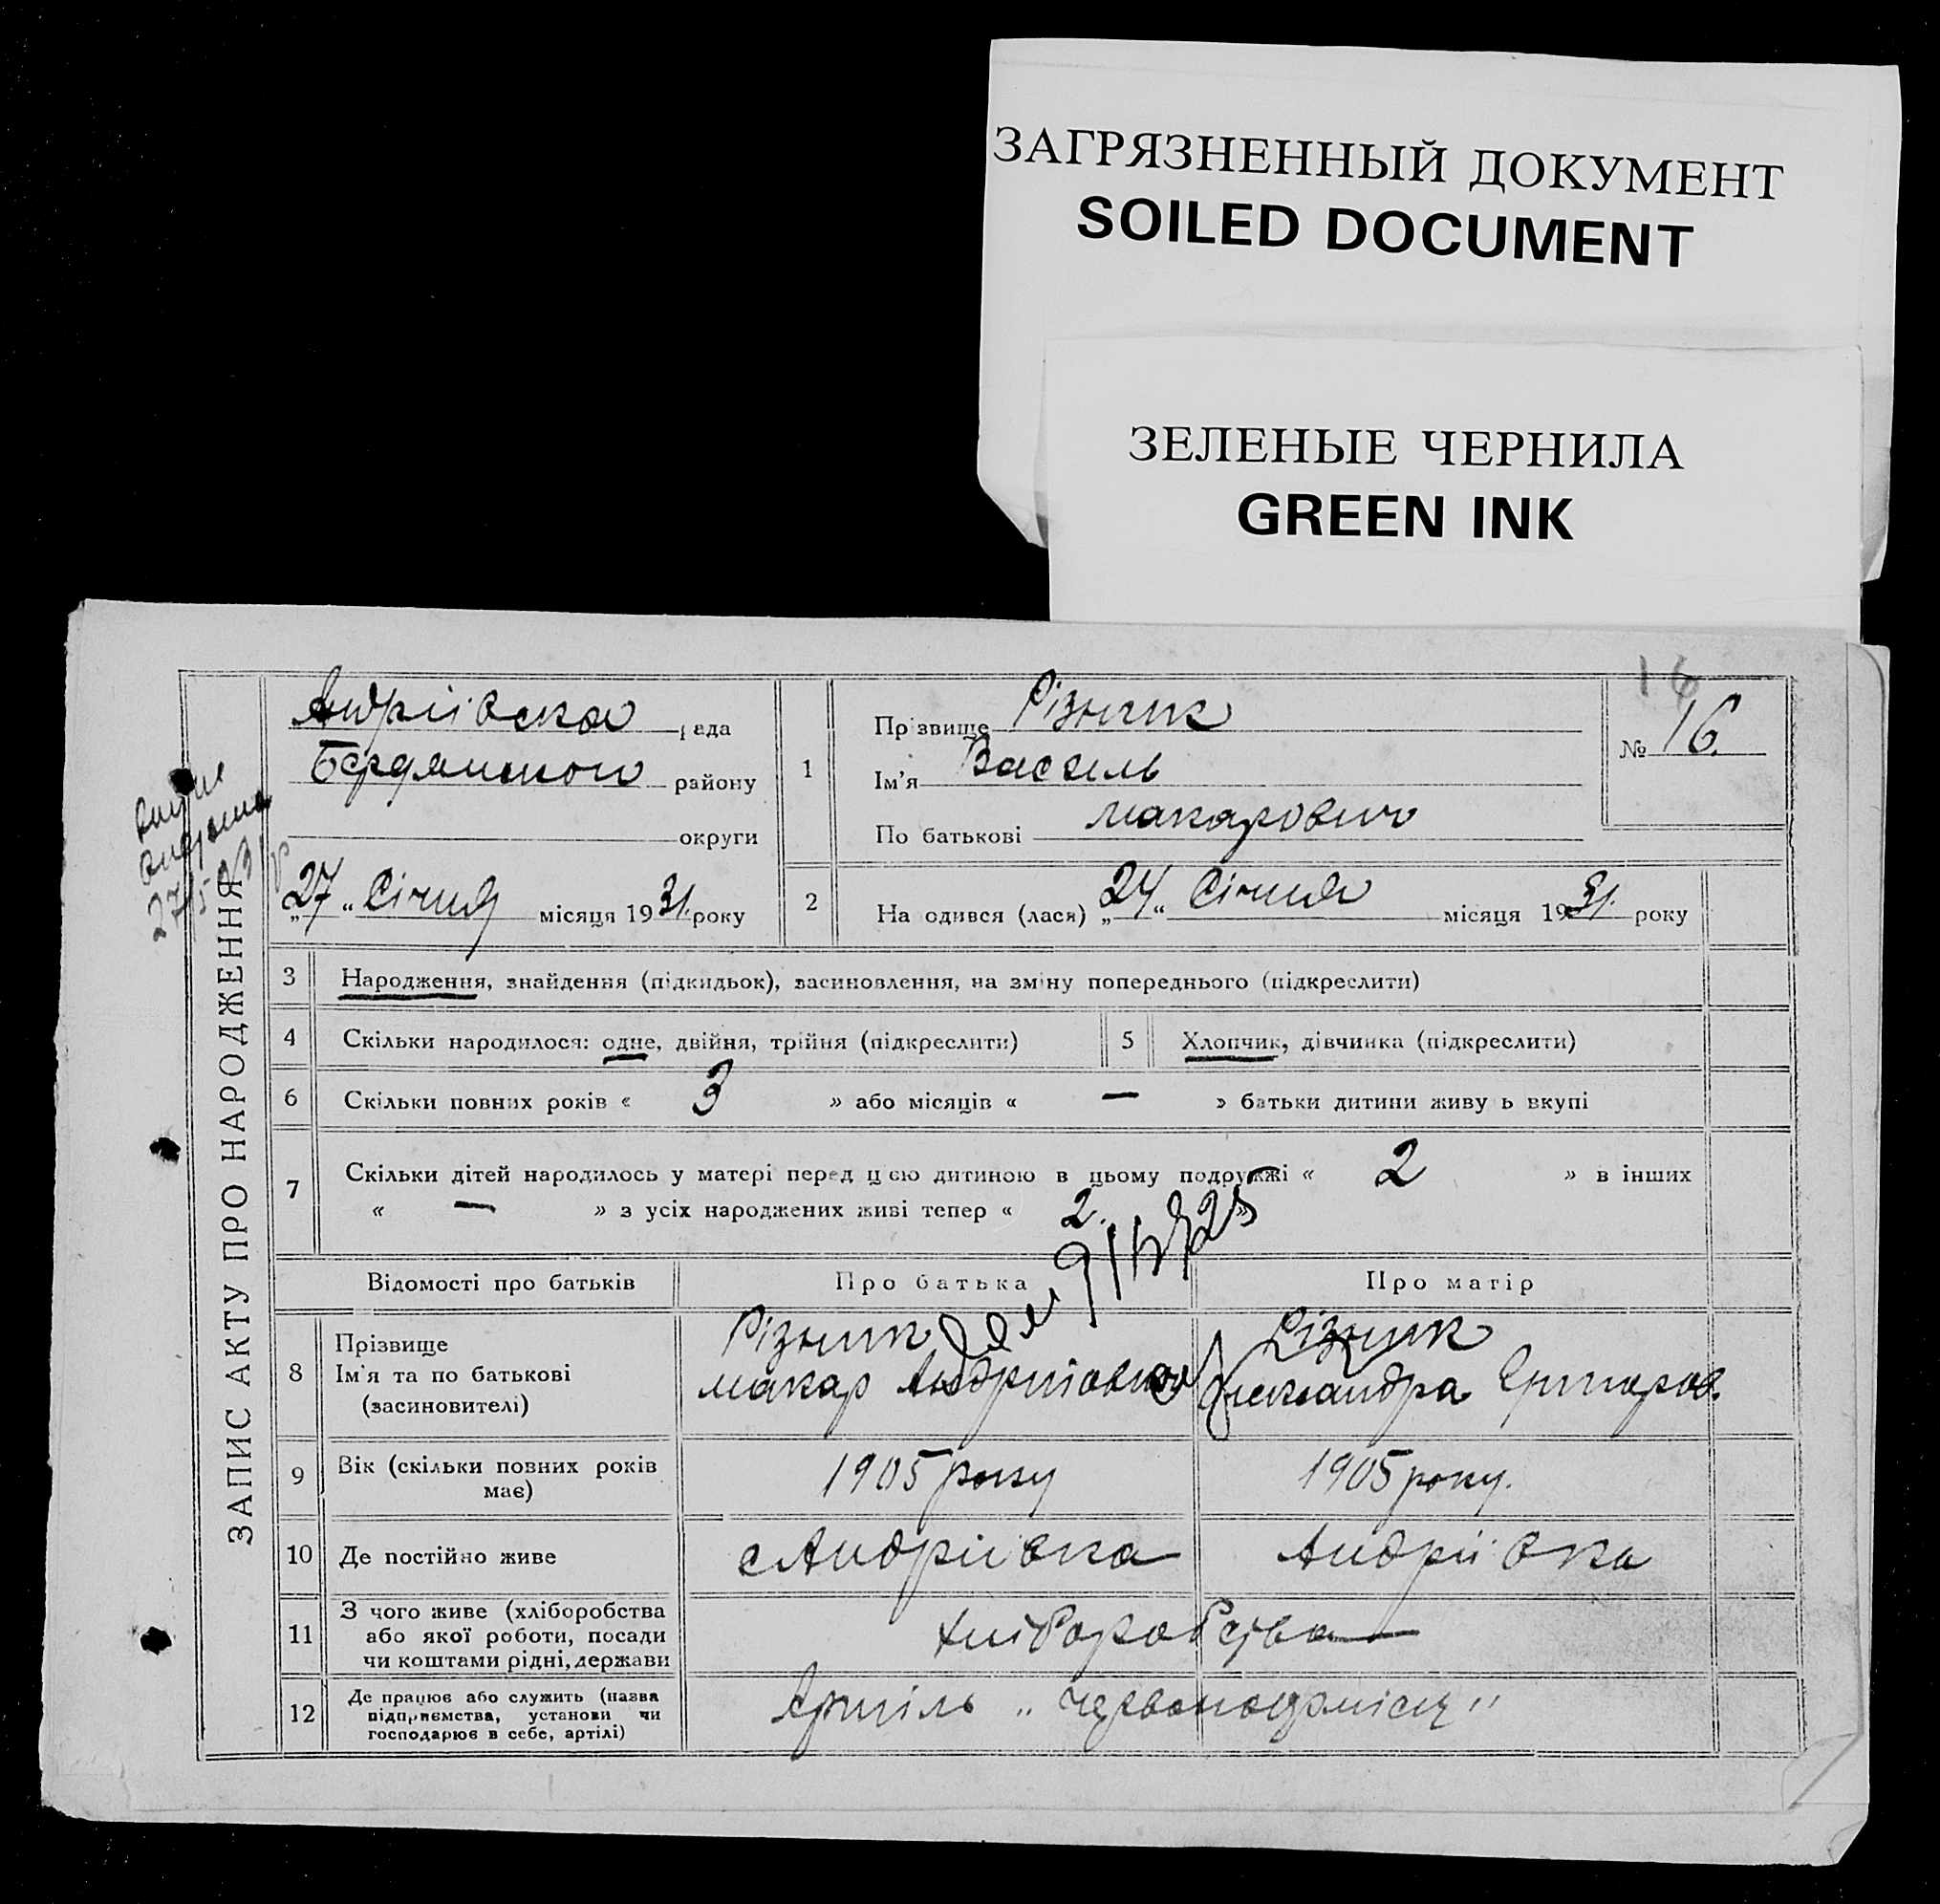 ЗАГРЯЗНЕННЫЙ ДОКУМЕНТ
SOILED DOCUMENT
ЗЕЛЕНЫЕ ЧЕРНИЛА
GREEN INK
16
ЗАПИС АКТУ ПРО НАРОДЖЕННЯ
Андріївська рада
Бердянського району
округи
„27“ Січня місяця 1931. року
1
Прізвище Різник
Ім'я Василь
По батькові Макарович
№ 16.
2
На одився (лася) „24“ Січня місяця 1931. року
3 Народження, знайдення (підкидьок), засиновлення, на зміну попереднього (підкреслити)
4 Скільки народилося: одне, двійня, трійня (підкреслити) 5 Хлопчик, дівчинка (підкреслити)
6 Скільки повних років « 3 » або місяців « — » батьки дитини живу ь вкупі
7 Скільки дітей народилось у матері перед цією дитиною в цьому подружжі « 2 » в інших
« — » з усіх народжених живі тепер « 2. »
Відомості про батьків Про батька Про матір
8 Прізвище
Ім'я та по батькові
(засиновителі)
Різник
Макар Андрійович
Різник
Олександра
9 Вік (скільки повних років
має)
1905 року 1905 року.
10 Де постійно живе с Андріївка Андріївка
11 З чого живе (хліборобства
або якої роботи, посади
чи коштами рідні, держави
Хліборобства
12 Де працює або служить (назва
підприємства, установи чи
господарює в себе, артілі)
Артіль „Червоноармієць"